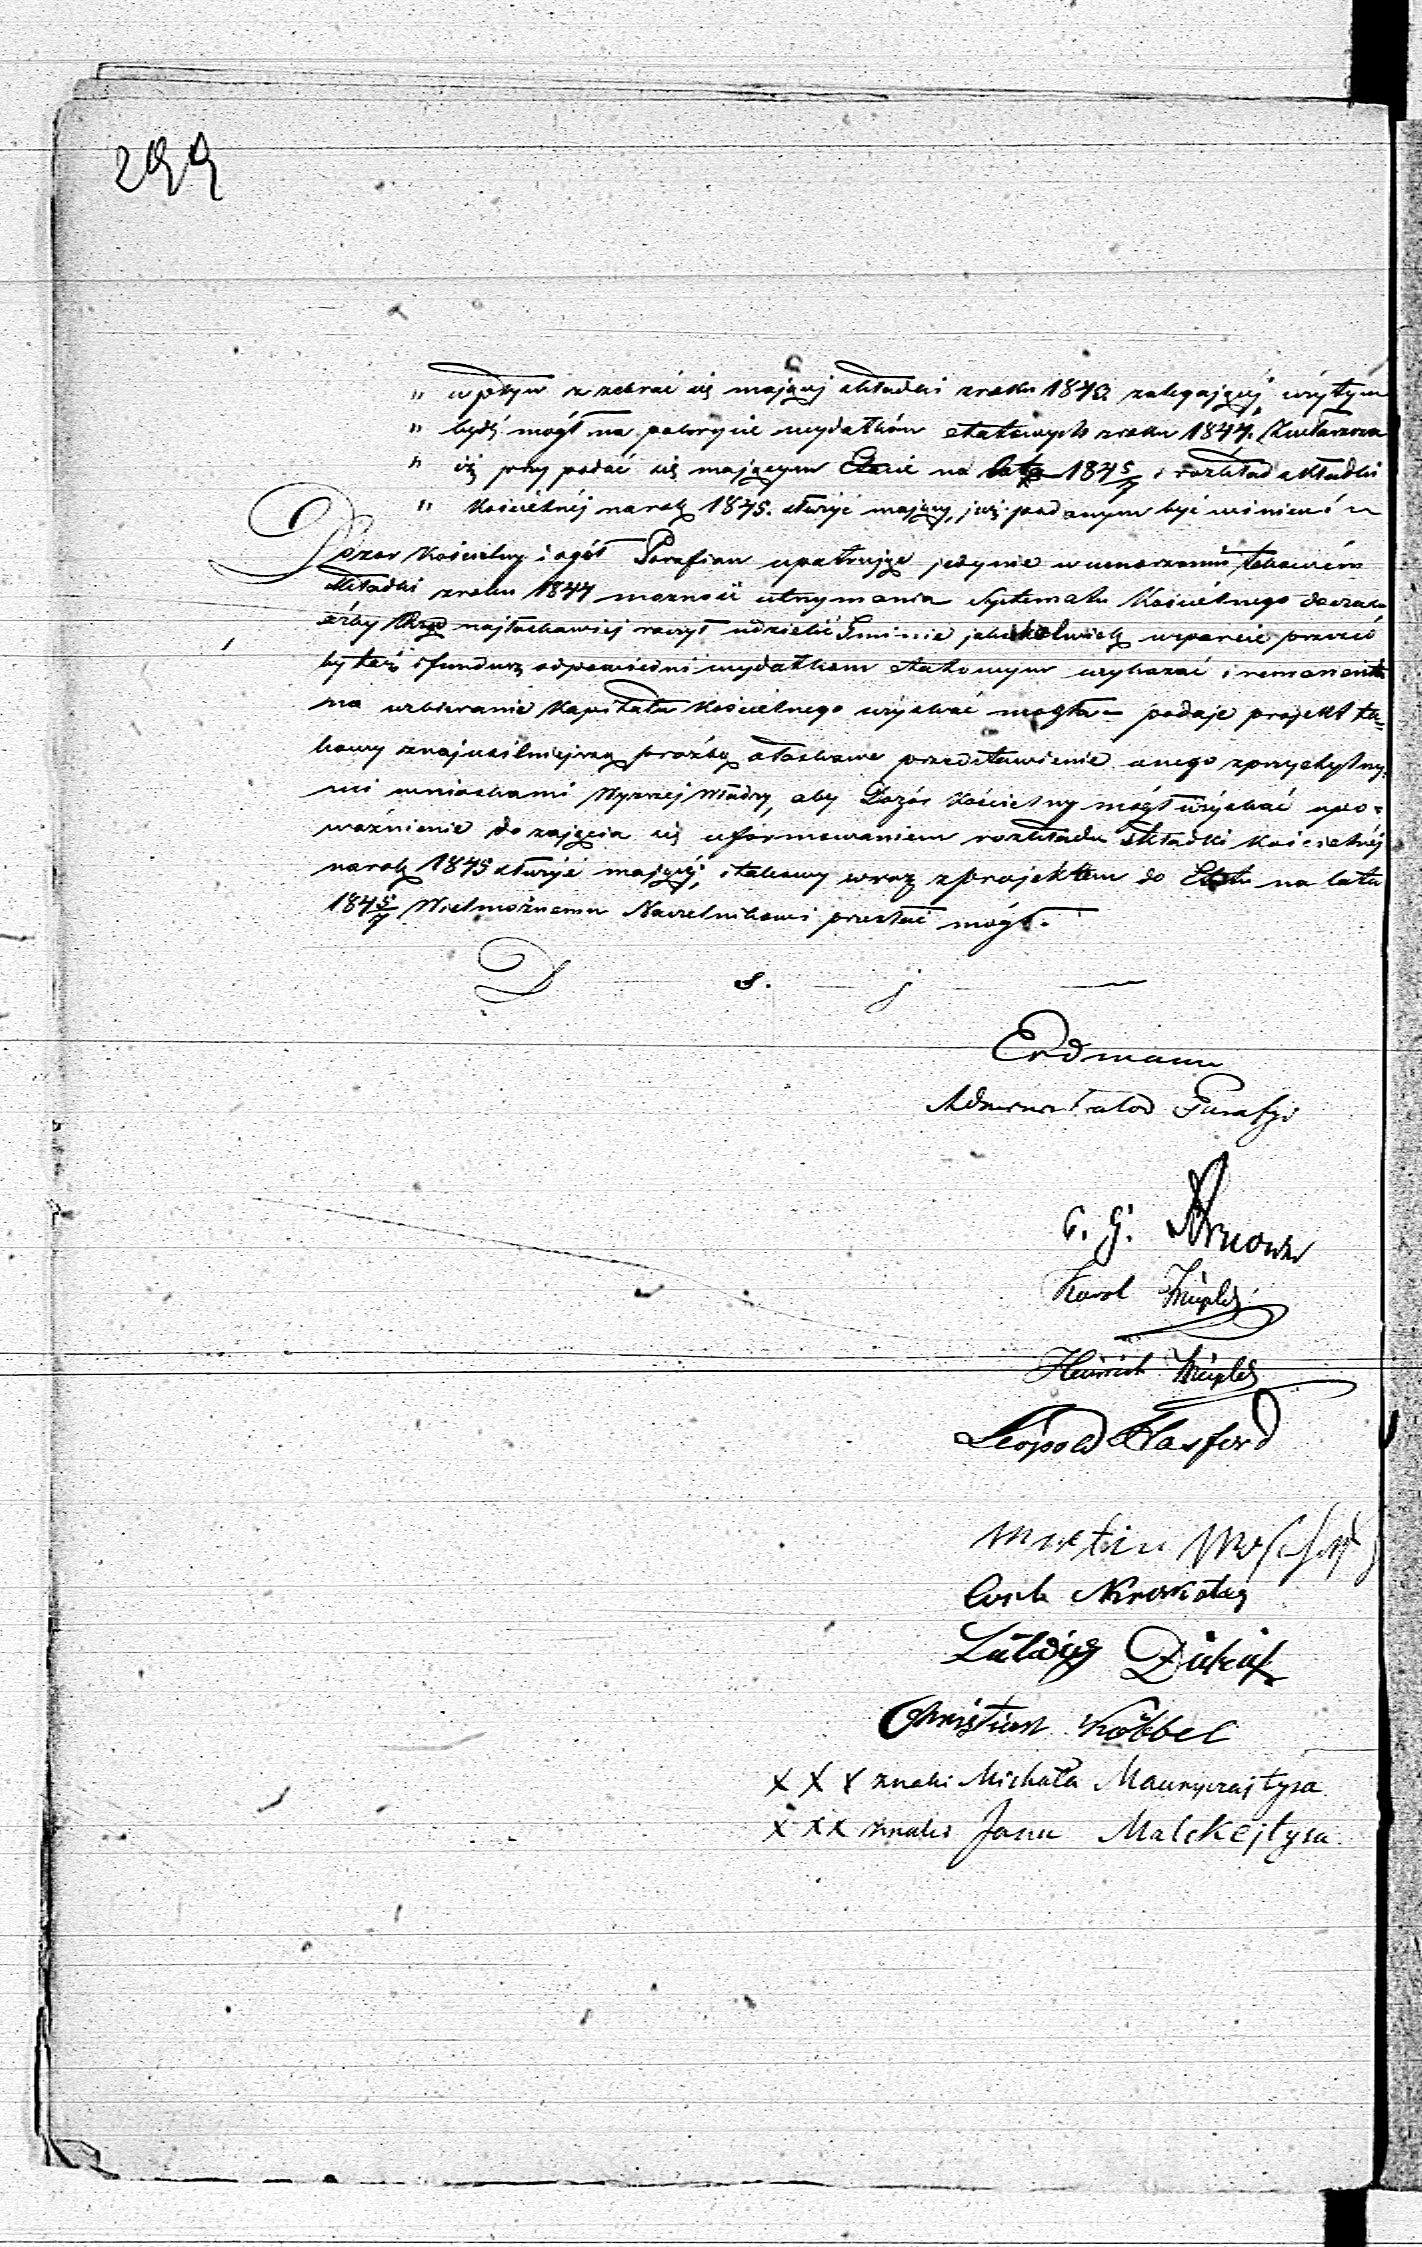 299
" wpływ z zebrać się mającej składki z roku 1843 zalegającej, użytym
" bydź mógł na pokrycie wydatków etatowych z roku 1844.
" iż przy podać się mającym Etacie na lata 1845/7 i rozkład składki
" Kościelnéj na rok 1845. służyć mający, już podanym być winien "
Dozór Kościelny i ogół Parafian upatrując jedynie w umorzeniu takowém
składki z roku 1844 możność utrzymania Systematu Kościelnego
ażby Rząd najłaskawiej raczył udzielić Gminie jakiekolwiek wsparcie przeto
by też fundusz odpowiedni wydatkom etatowym wykazać i remanenta
na uzbieranie Kapitału Kościelnego uzyskać mogła – podaje projekt ta-
kowy z najusilniejszą prośbą o łaskawe przedstawienie onego z przychylny-
mi wnioskami Wyższej Władzy, aby Dozór Kościelny mógł uzyskać upo-
ważnienie do zajęcia się uformowaniem rozkładu składki Kościelnéj
na rok 1845 służyć mającéj, i takowy wraz z projektem do Etatu na lata
1845/7 Wielmożnemu Naczelnikowi przesłać mógł.
D s. j
Erdmann
Administrator Parafyi
C. G.
Karol
Heinrich
Leopold Hasford
Martin
Ludwig
Christian Köbbel
X X X znaki Michała Mauryczajtysa
X X X znaki Jana Malskejtysa.